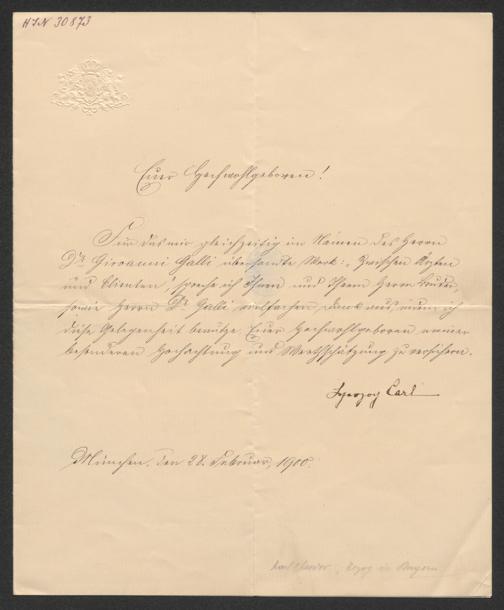 HJN 30873
Euer Hochwohlgeboren!
Für das mir gleichzeitig im Namen des Herrn
Drs Giovanni Galli übersandte Werk: „Zwischen Ärzten
und Clienten“, spreche ich Ihnen und Ihrem Herrn Bruder,
sowie Herrn Dr. Galli vielfachen Dank aus, indem ich
diese Gelegenheit benütze, Euer Hochwohlgeboren meiner
besonderen Hochachtung und Werthschätzung zu versichern.
Herzog Carl
München, den 28. Februar, 1900.
Karl Theodor, Herzog in Bayern